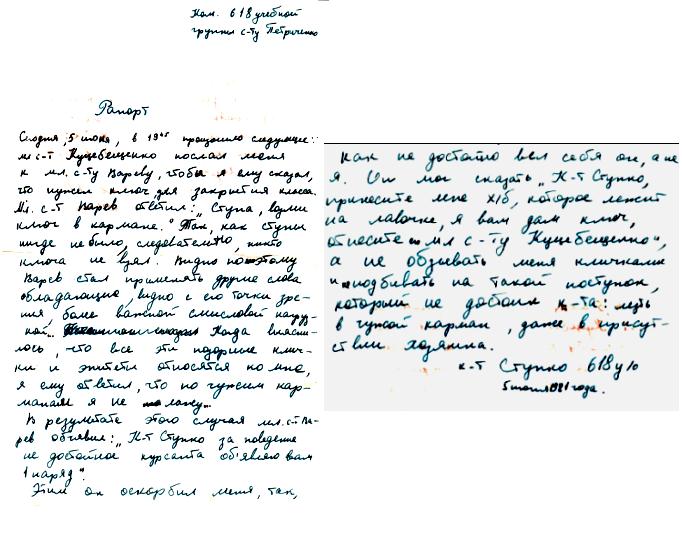 Ком. 618 учебной
группы с-ту Петриченко
Рапорт
Сегодня, 5 июня, в 19⁴⁵ произошло следующее:
мл с-т Куцебещенко послал меня
к мл. с-ту Вареву, чтобы я ему сказал,
что нужен ключ для закрытия класса.
Мл. с-т Варев ответил: „Ступа, возьми
ключ в кармане." Так, как ступы
нигде не было, следовательно, никто
ключа не взял. Видно поэтому
Варев стал применять другие слова
обладающие, видно с его точки зре-
ния более важной смысловой нагруз-
кой. Когда выясни-
лось, что все эти подобные клич-
ки и эпитеты относятся ко мне,
я ему ответил, что по чужим кар-
манам я не лажу...
В результате этого случая мл. с-т Ва-
рев объявил: „К-т Ступко за поведение
не достойное курсанта объявляю вам
1 наряд".
Этим он оскорбил меня, так,
как не достойно вел себя он, а не
я. Он мог сказать „К-т Ступко,
принесите мне х/б, которое лежит
на лавочке, я вам дам ключ,
отнесите мл с-ту Куцебещенко",
а не обзывать меня кличками
и подбивать на такой поступок,
который не достоин к-та: лезть
в чужой карман, даже в присут-
ствии хозяина.
к-т Ступко 618 у/г
5 июня 1981 года.